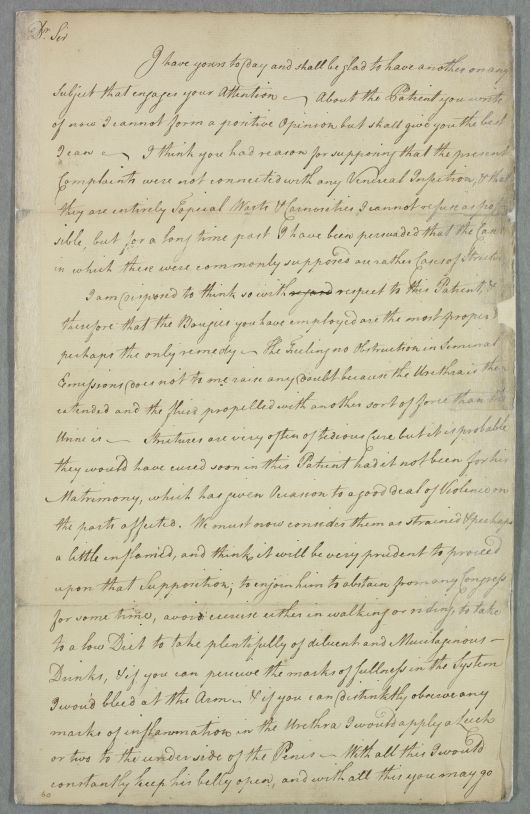 Dr. Sir
I have yours to day and shall be glad to have another on any
Subject that engages your Attention — About the Patient you wrote
of now I cannot form a positive Opinion but shall give you the best
I can — I think you had reason for supposing that the present
Complaints were not connected with any Venereal Infection, & that
they are entirely Topical Warts & Carnosities I cannot refuse as pos-
sible, but for a long time past I have been persuaded that the Cases
in which these were commonly supposed are rather Cases of Stricture
I am disposed to think so with regard respect to this Patient, &
therefore that the Bougies you have employed are the most proper &
perhaps the only remedy — The Feeling no Obstruction in Seminal
Emissions does not to me raise any doubt because the Urethra is then
extended and the fluid propelled with another sort of force than the
Urine is — Strictures are very often of tedious Cure but it is probable
they would have cured soon in this Patient had it not been for his
Matrimony, which has given Occasion to a good deal of Violence on
the parts affected. We must now consider them as strained & perhaps
a little inflamed, and think it will be very prudent to proceed
upon that Supposition; to enjoin him to abstain from any Congress
for some time, avoid exercise either in walking or riding, to take
to a low Diet to take plentifully of diluent and Mucilagenous —
Drinks, & if you can perceive the marks of fullness in the System
I wou'd bleed at the Arm & if you can distinktly observe any
marks of inflammation in the Urethra I would apply a Leech
or two to the underside of the Penis — With all this I would
constantly keep his belly open, and with all this you may go
60